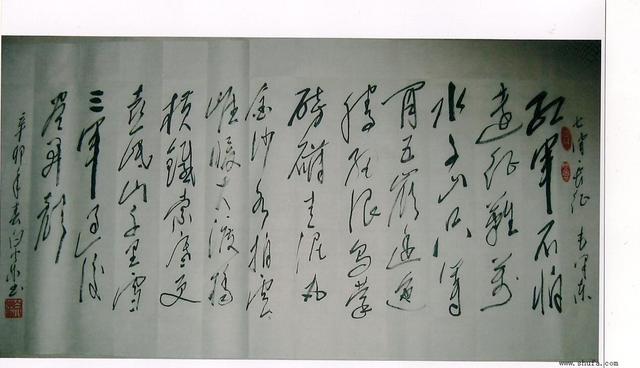 七律·长征 毛泽东
红軍不怕
遠征難萬
水千山只等
闲五嶺逶迤
腾细浪乌蒙
磅礴走泥丸
金沙水拍雲
崖暖大渡橋
横鐵索寒更
喜岷山千里雪
三軍过後
尽开颜
辛卯年春
www.shufa.com